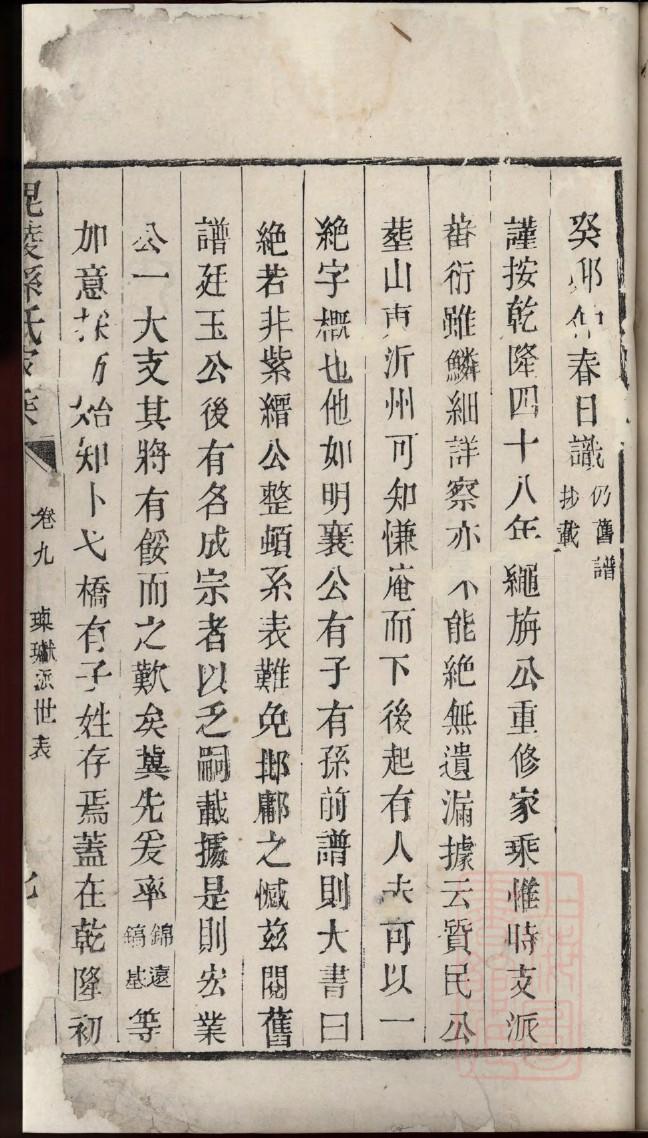 癸卯仲春日識仍舊譜抄載
謹按乾隆四十八年繩旃公重修家乘惟時支派
蕃衍雖鱗細詳察亦不能絶無遺漏據云質民公
塟山東沂州可知慊庵而下後起有人未可以一
絶字概也他如明襄公有子有孫前譜則大書曰
絶若非紫縉公整頓系表難免鄁鄘之憾兹閱舊
譜廷玉公後有各成宗者以乏嗣載據是則宏業
公一大支其將有餒而之歎矣冀先爰率錦遠鎬基等
加意採訪始知卜弋橋有子姓存焉蓋在乾隆初
毘陵孫氏家乘 卷九 璞獻派世表 九